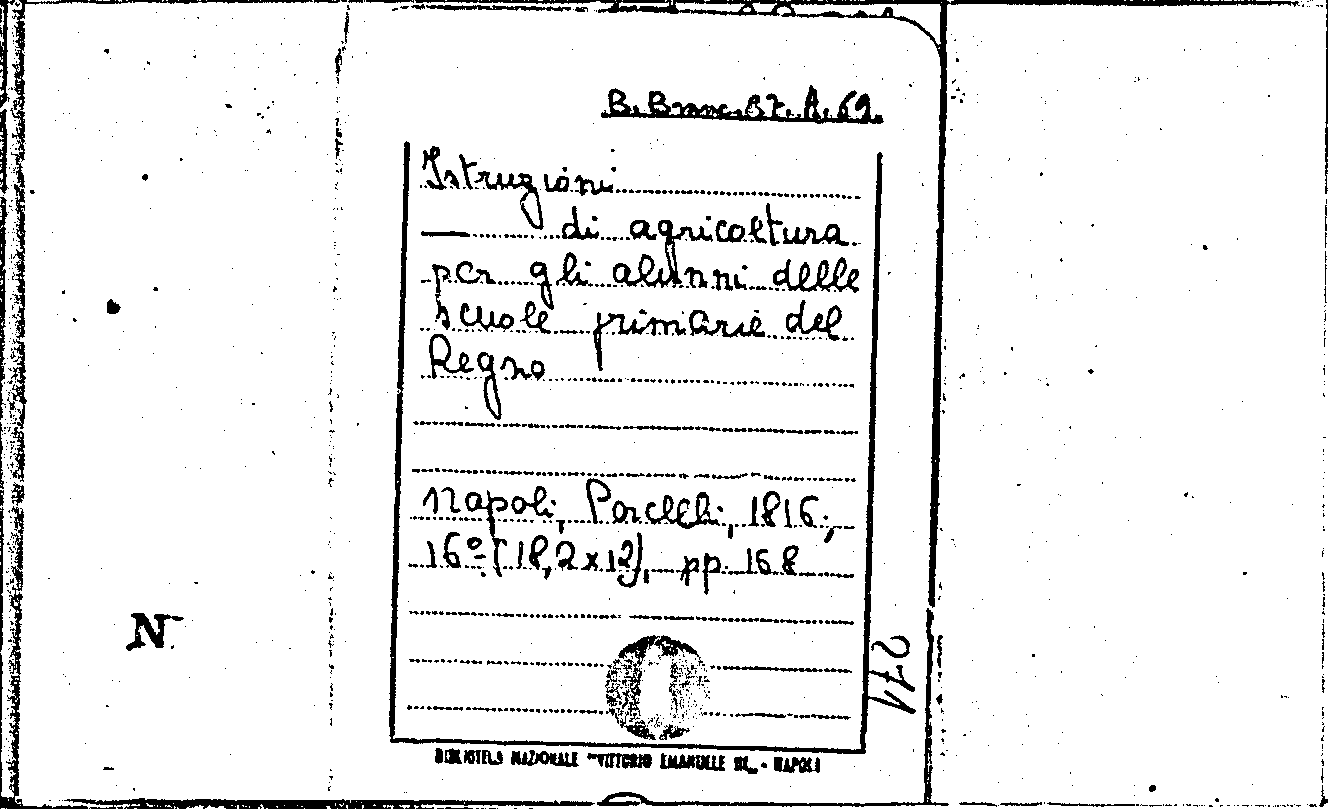 B. Branc. 37. A. 69.
Istruzioni
— di agricoltura
per gli alunni delle
scuole primarie del
Regno
Napoli, Porcelli, 1816;
16º (18,2 x 12), pp. 168
271
N
BIBLIOTECA NAZIONALE "VITTORIO EMANUELE III" - NAPOLI